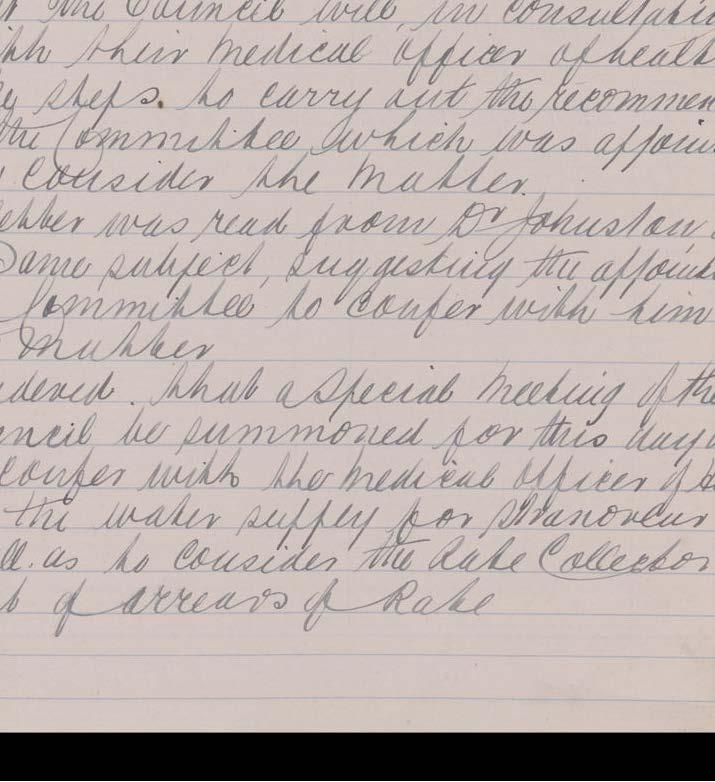 the Council will, in consultatio
ith their Medical officer of health
steps. to carry out the recommen
the Committee which was appoin
consider the Matter.
etter was read from Dr Johnston,
Same subject, suggesting the appoint
Committee to Confer with him
Matter
dered. that a Special Meeting of the
uncil be summoned for this day
Confer with the Medical Officer of
the water supply for Stranorlar
ll. as to Consider the Rate Collector
of arrears of Rate